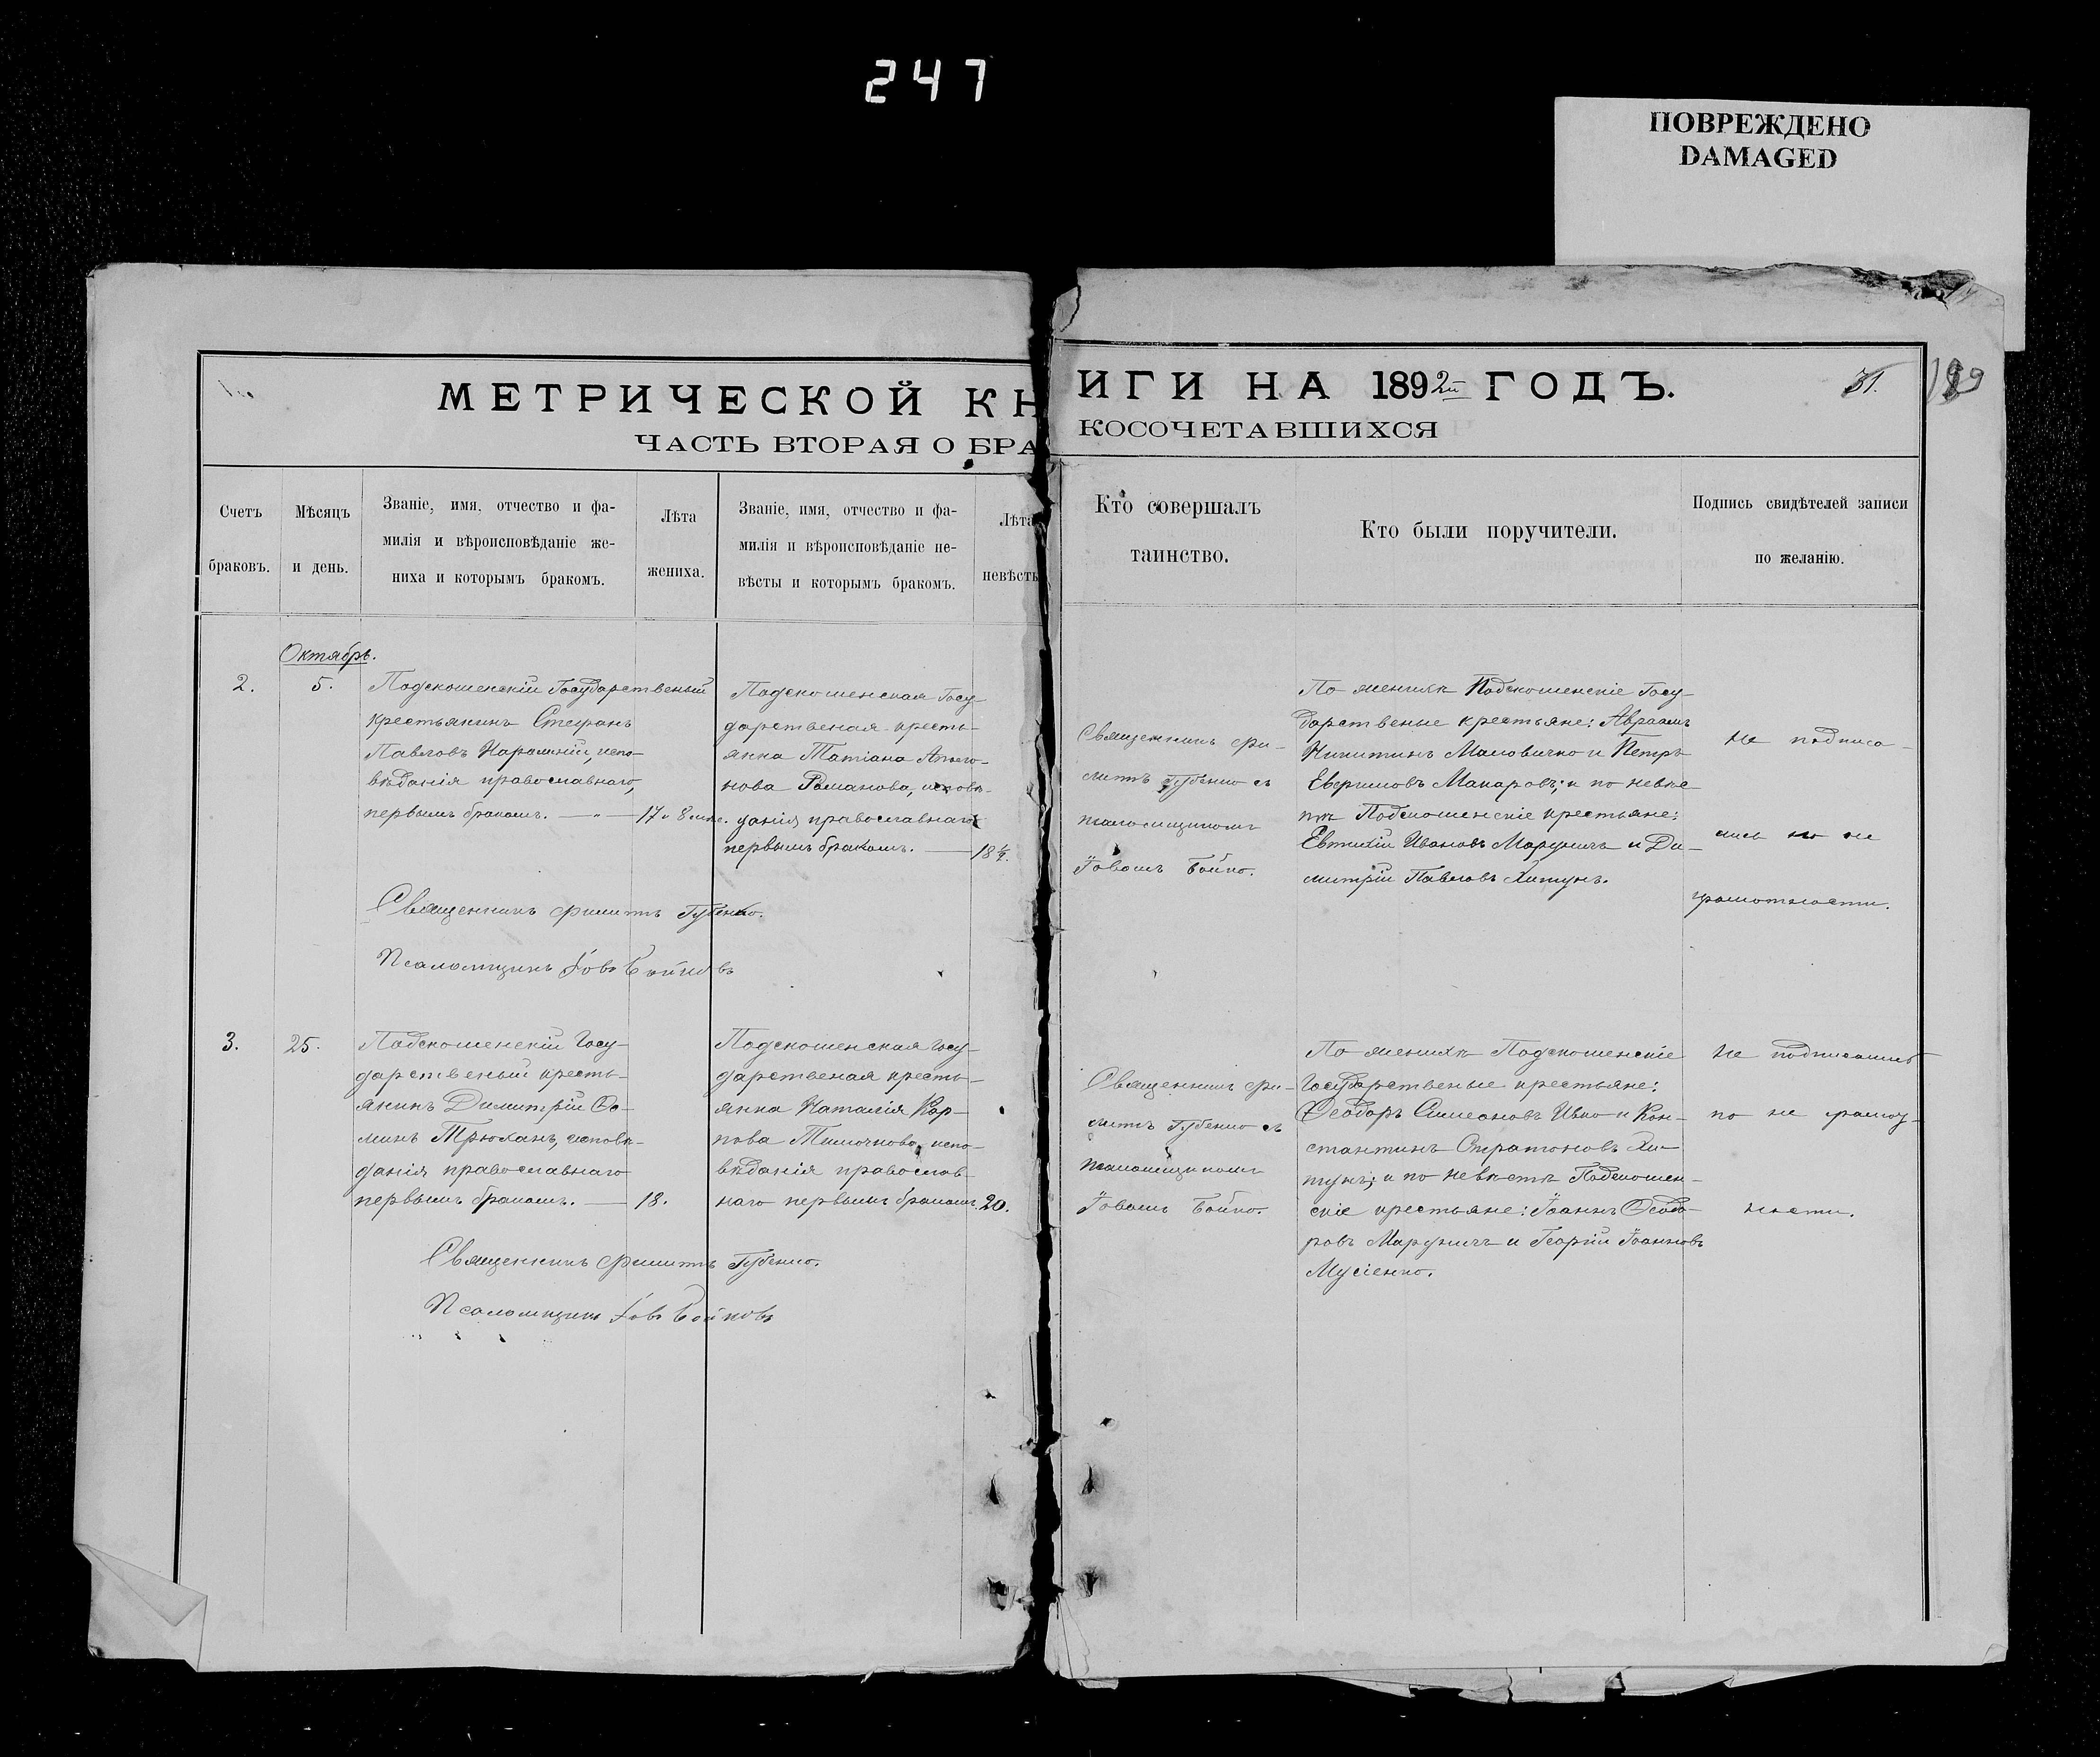 247
ПОВРЕЖДЕНО
DAMAGED
МЕТРИЧЕСКОЙ КНИГИ НА 1892й ГОДЪ.
31.
ЧАСТЬ ВТОРАЯ О БРАКОСОЧЕТАВШИХСЯ
Счетъ
браковъ.
Мѣсяцъ
и день.
Званіе, имя, отчество и фа-
милія и вѣроисповѣданіе же-
ниха и которымъ бракомъ.
Лѣта
жениха.
Званіе, имя, отчество и фа-
милія и вѣроисповѣданіе не-
вѣсты и которымъ бракомъ.
Лѣта
невѣсты
Кто совершалъ
таинство.
Кто были поручители.
Подпись свидѣтелей записи
по желанію.
Октябрь.
2.
5.
Подскошенскій Государственый
крестьянинъ Стефанъ
Павловъ испо-
вѣданія православнаго,
первымъ бракомъ.
17 и 8 мѣс.
Подскошенская Госу-
дарственая кресть-
янка Татіана
нова Романова, исповѣ-
данія православнаго
первымъ бракомъ.
18 ½.
Священникъ Фи-
липъ Губенко съ
псаломщикомъ
Іовомъ Бойко.
По женихѣ Подскошенскіе Госу-
дарственые крестьяне: Авраамъ
Никитинъ Маловичко и Петръ
Макаровъ; и по невѣс-
тѣ Подскошенскіе крестьяне:
Евтихій Ивановъ и Ди-
митрій Павловъ Хитунъ.
Не подписа-
лись по не
грамотности.
Священникъ Филиппъ Губенко.
Псаломщикъ Іовъ Бойковъ
3.
25.
Подскошенскій Госу-
дарственый кресть-
янинъ Димитрій Ѳо-
минъ Трюханъ, исповѣ-
данія православнаго
первымъ бракомъ.
18.
Подскошенская Госу-
дарственая кресть-
янка Наталія Кар-
пова Тимочкова, испо-
вѣданія православ-
наго первымъ бракомъ.
20.
Священникъ Фи-
липъ Губенко съ
псаломщикомъ
Іовомъ Бойко.
По женихѣ Подскошенскіе
Государственые крестьяне:
Ѳеодоръ Симеоновъ Ивко и Кон-
стантинъ Стратоновъ Хи-
тунъ; и по невѣстѣ Подскошен-
скіе крестьяне: Іоаннъ Ѳеодо-
ровъ и Георгій Іоанновъ
Мусіенко.
Не подписались
по не
ности.
Священникъ Филиппъ Губенко.
Псаломщикъ Іовъ Бойковъ